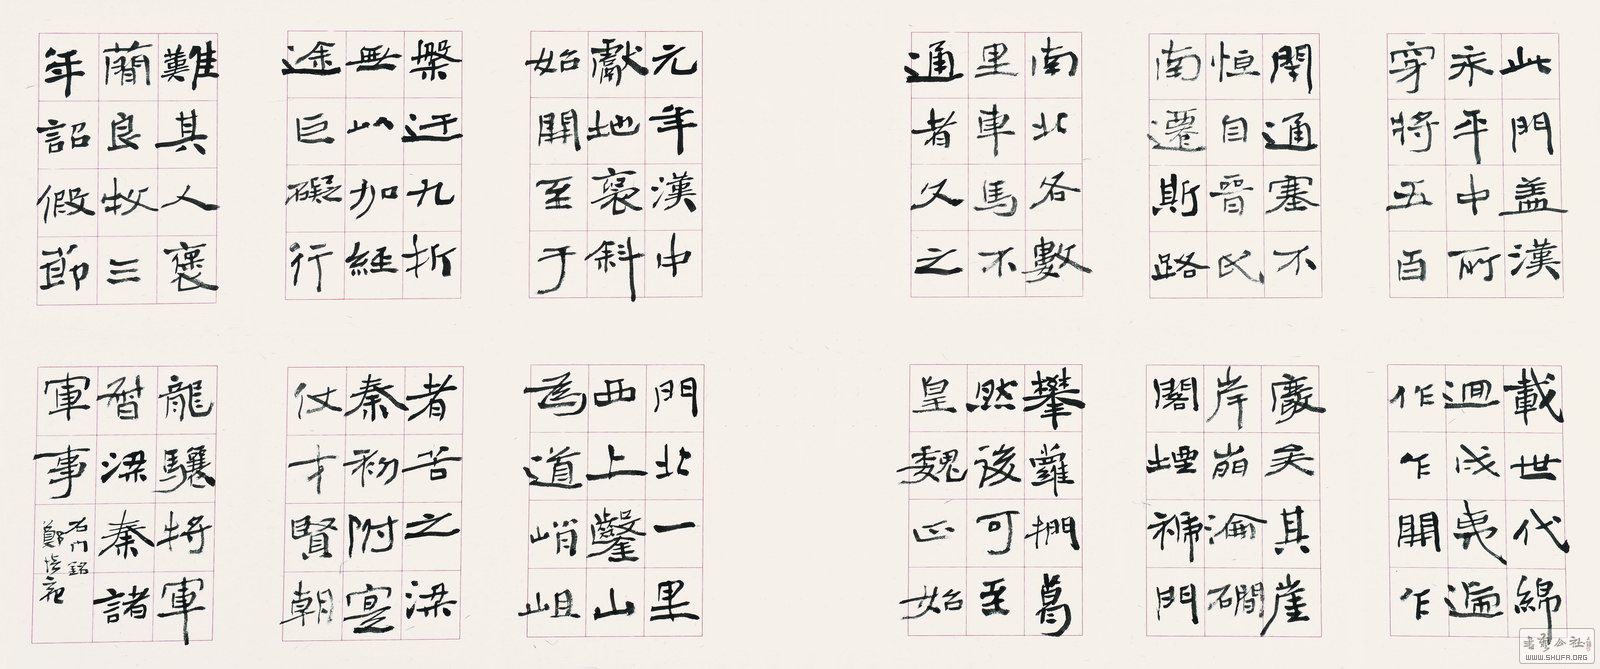 此門蓋漢
永平中所
穿將五百
載世代綿
迴戎夷遞
作乍開乍
閉通塞不
恒自晉氏
南遷斯路
廢矣其崖
岸崩淪磵
閣堙褫門
南北各數
里車馬不
通者久之
攀蘿捫葛
然後可至
皇魏正始
元年漢中
獻地裦斜
始開至于
門北一里
西上鑿山
為道峭岨
槃迂九折
無以加經
途巨礙行
者苦之梁
秦初附寔
仗才賢朝
難其人褒
蕑良牧三
年詔假節
龍驤將軍
督梁秦諸
軍事
石門銘
鄭培亮
書藝公社
WWW.SHUFA.ORG